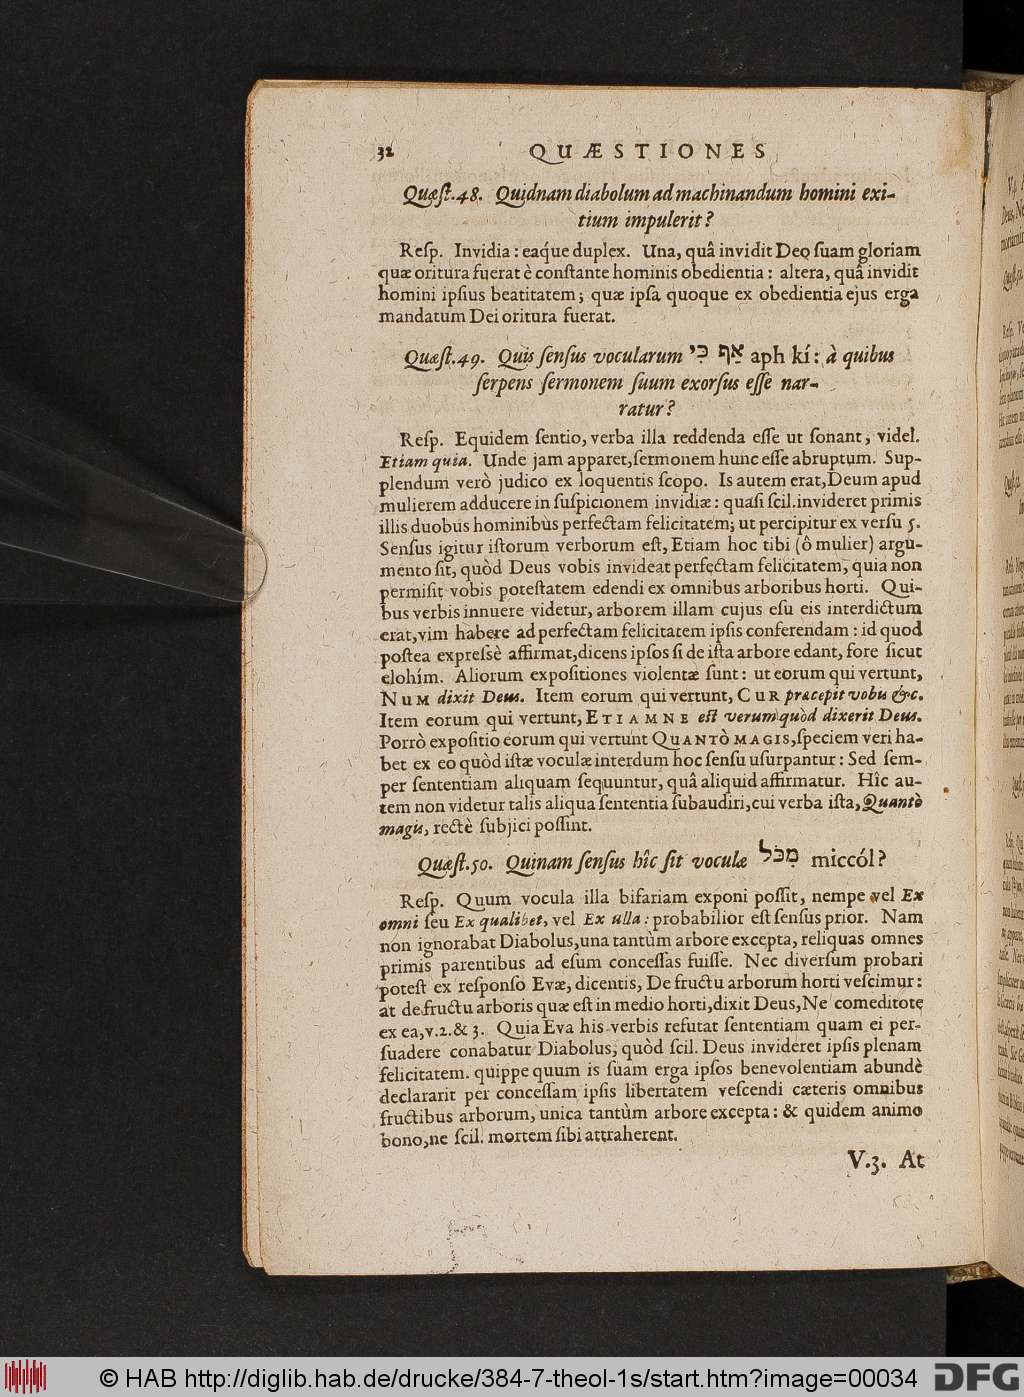 32 QUÆSTIONES
Quæſt. 48. Quidnam diabolum ad machinandum homini exi-
tium impulerit?
Reſp. Invidia: eaq́ue duplex. Una, quâ invidit Deo ſuam gloriam
quæ oritura fuerat è conſtante hominis obedientia: altera, quâ invidit
homini ipſius beatitatem; quæ ipſa quoque ex obedientia ejus erga
mandatum Dei oritura fuerat.
Quæſt. 49. Quis ſenſus vocularum אַף כִּי aph kí: à quibus
ſerpens ſermonem ſuum exorſus eſſe nar-
ratur?
Reſp. Equidem ſentio, verba illa reddenda eſſe ut ſonant, videl.
Etiam quia. Unde jam apparet, ſermonem hunc eſſe abruptum. Sup-
plendum verò judico ex loquentis ſcopo. Is autem erat, Deum apud
mulierem adducere in ſuſpicionem invidiæ: quaſi ſcil. invideret primis
illis duobus hominibus perfectam felicitatem; ut percipitur ex verſu 5.
Senſus igitur iſtorum verborum eſt, Etiam hoc tibi (ô mulier) argu-
mento ſit, quòd Deus vobis invideat perfectam felicitatem, quia non
permiſit vobis poteſtatem edendi ex omnibus arboribus horti. Qui-
bus verbis innuere videtur, arborem illam cujus eſu eis interdictum
erat, vim habere ad perfectam felicitatem ipſis conferendam: id quod
poſtea expreſsè affirmat, dicens ipſos ſi de iſta arbore edant, fore ſicut
elohím. Aliorum expoſitiones violentæ ſunt: ut eorum qui vertunt,
NUM dixit Deus. Item eorum qui vertunt, CUR præcepit vobis &c.
Item eorum qui vertunt, ETIAMNE eſt verum quòd dixerit Deus.
Porrò expoſitio eorum qui vertunt QUANTÒ MAGIS, ſpeciem veri ha-
bet ex eo quòd iſtæ voculæ interdum hoc ſenſu uſurpantur: Sed ſem-
per ſententiam aliquam ſequuntur, quâ aliquid affirmatur. Hîc au-
tem non videtur talis aliqua ſententia ſubaudiri, cui verba iſta, Quantò
magis, rectè ſubjici poſſint.
Quæſt. 50. Quinam ſenſus hîc ſit voculæ מִכֹּל miccól?
Reſp. Quum vocula illa bifariam exponi poſſit, nempe vel Ex
omni ſeu Ex qualibet, vel Ex ulla: probabilior eſt ſenſus prior. Nam
non ignorabat Diabolus, una tantùm arbore excepta, reliquas omnes
primis parentibus ad eſum conceſſas fuiſſe. Nec diverſum probari
poteſt ex reſponſo Evæ, dicentis, De fructu arborum horti veſcimur:
at de fructu arboris quæ eſt in medio horti, dixit Deus, Ne comeditote
ex ea, v. 2. & 3. Quia Eva his verbis refutat ſententiam quam ei per-
ſuadere conabatur Diabolus, quòd ſcil. Deus invideret ipſis plenam
felicitatem. quippe quum is ſuam erga ipſos benevolentiam abundè
declararit per conceſſam ipſis libertatem veſcendi cæteris omnibus
fructibus arborum, unica tantùm arbore excepta: & quidem animo
bono, ne ſcil. mortem ſibi attraherent.
V. 3. At
© HAB http://diglib.hab.de/drucke/384-7-theol-1s/start.htm?image=00034
DFG